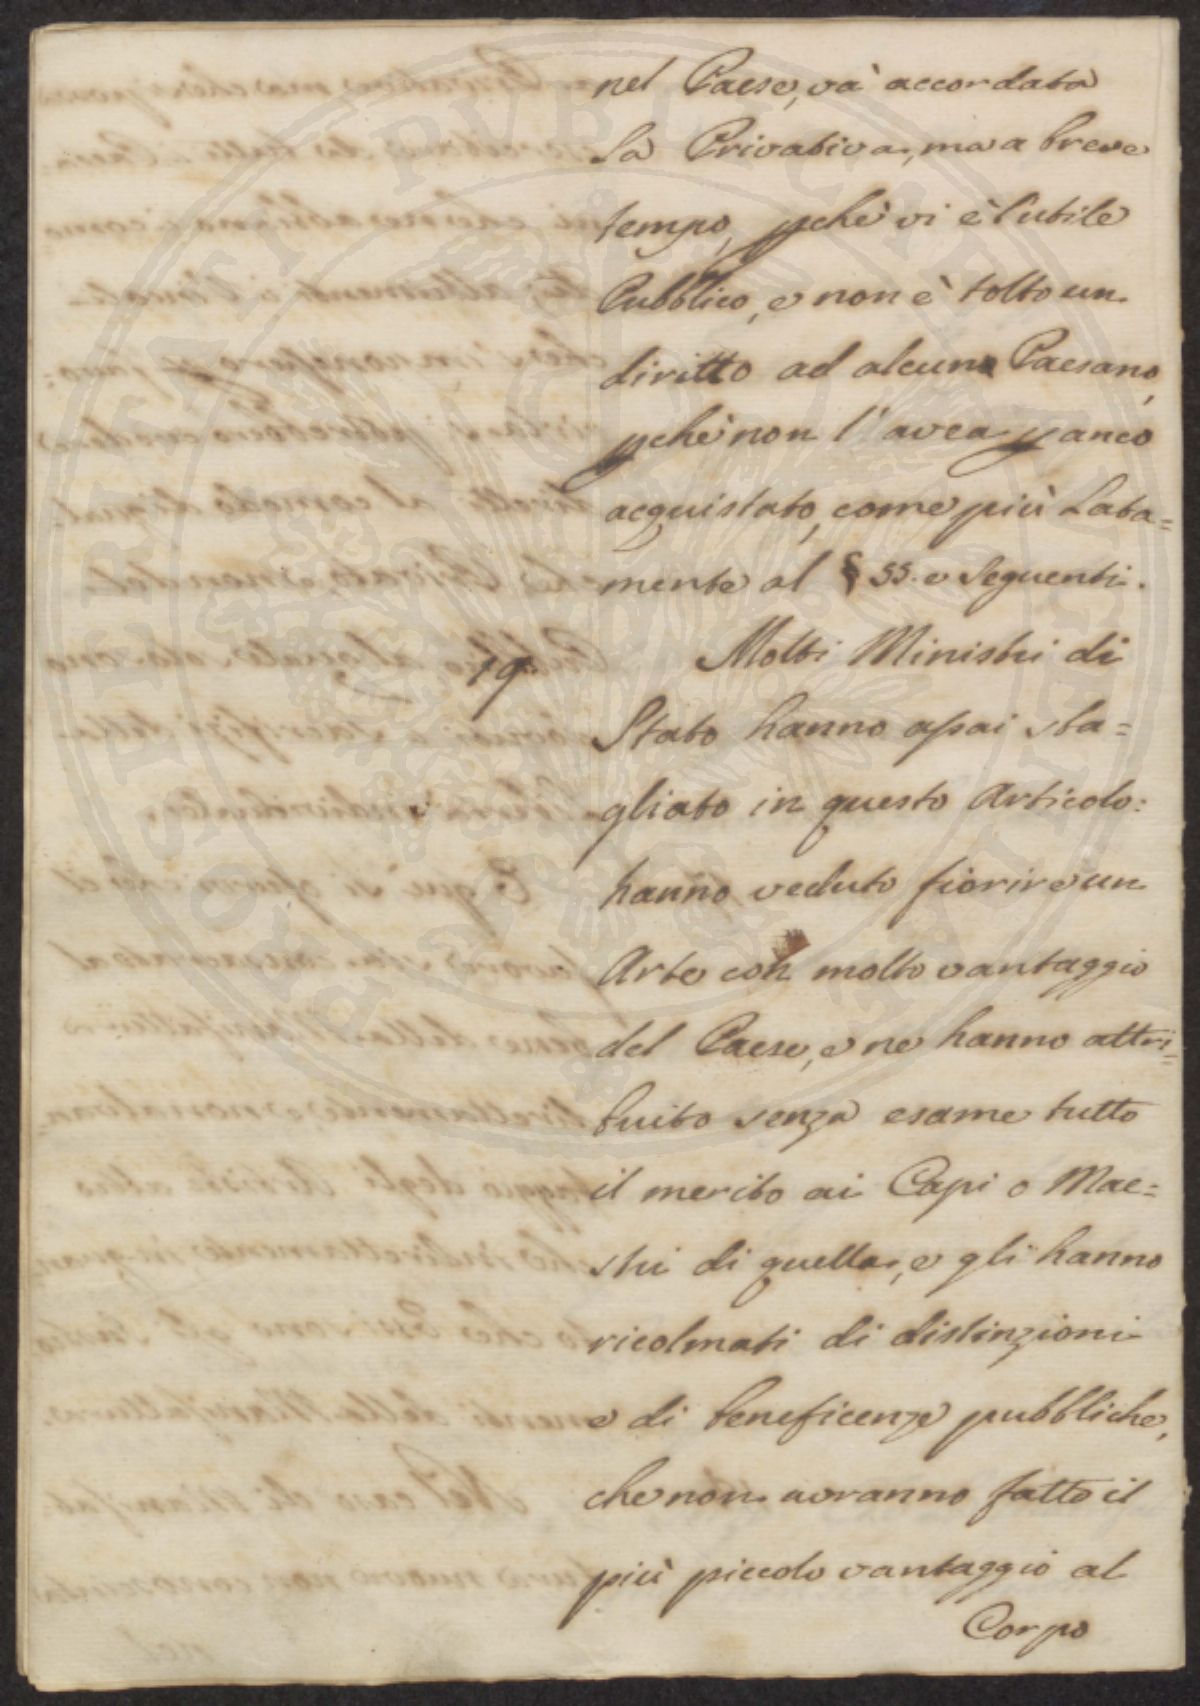 nel Paese, và accordata
la Privativa, ma a breve
tempo, pchè vi è l'utile
Pubblico, e non è tolto un
diritto ad alcuno Paesano,
pchè non l'avea p anco
acquistato, come più Lata=
mente al § 55. e Seguenti.
19.
Molti Ministri di
Stato hanno assai sba=
gliato in questo Articolo:
hanno veduto fiorire un
Arte con molto vantaggio
del Paese, e ne hanno attri=
buito senza esame tutto
il merito ai Capi o Mae=
stri di quella, e gli hanno
ricolmati di distinzioni
e di beneficenze pubbliche,
che non avranno fatto il
più piccolo vantaggio al
Corpo
PROSPERITATI PUBLICAE AUGENDAE